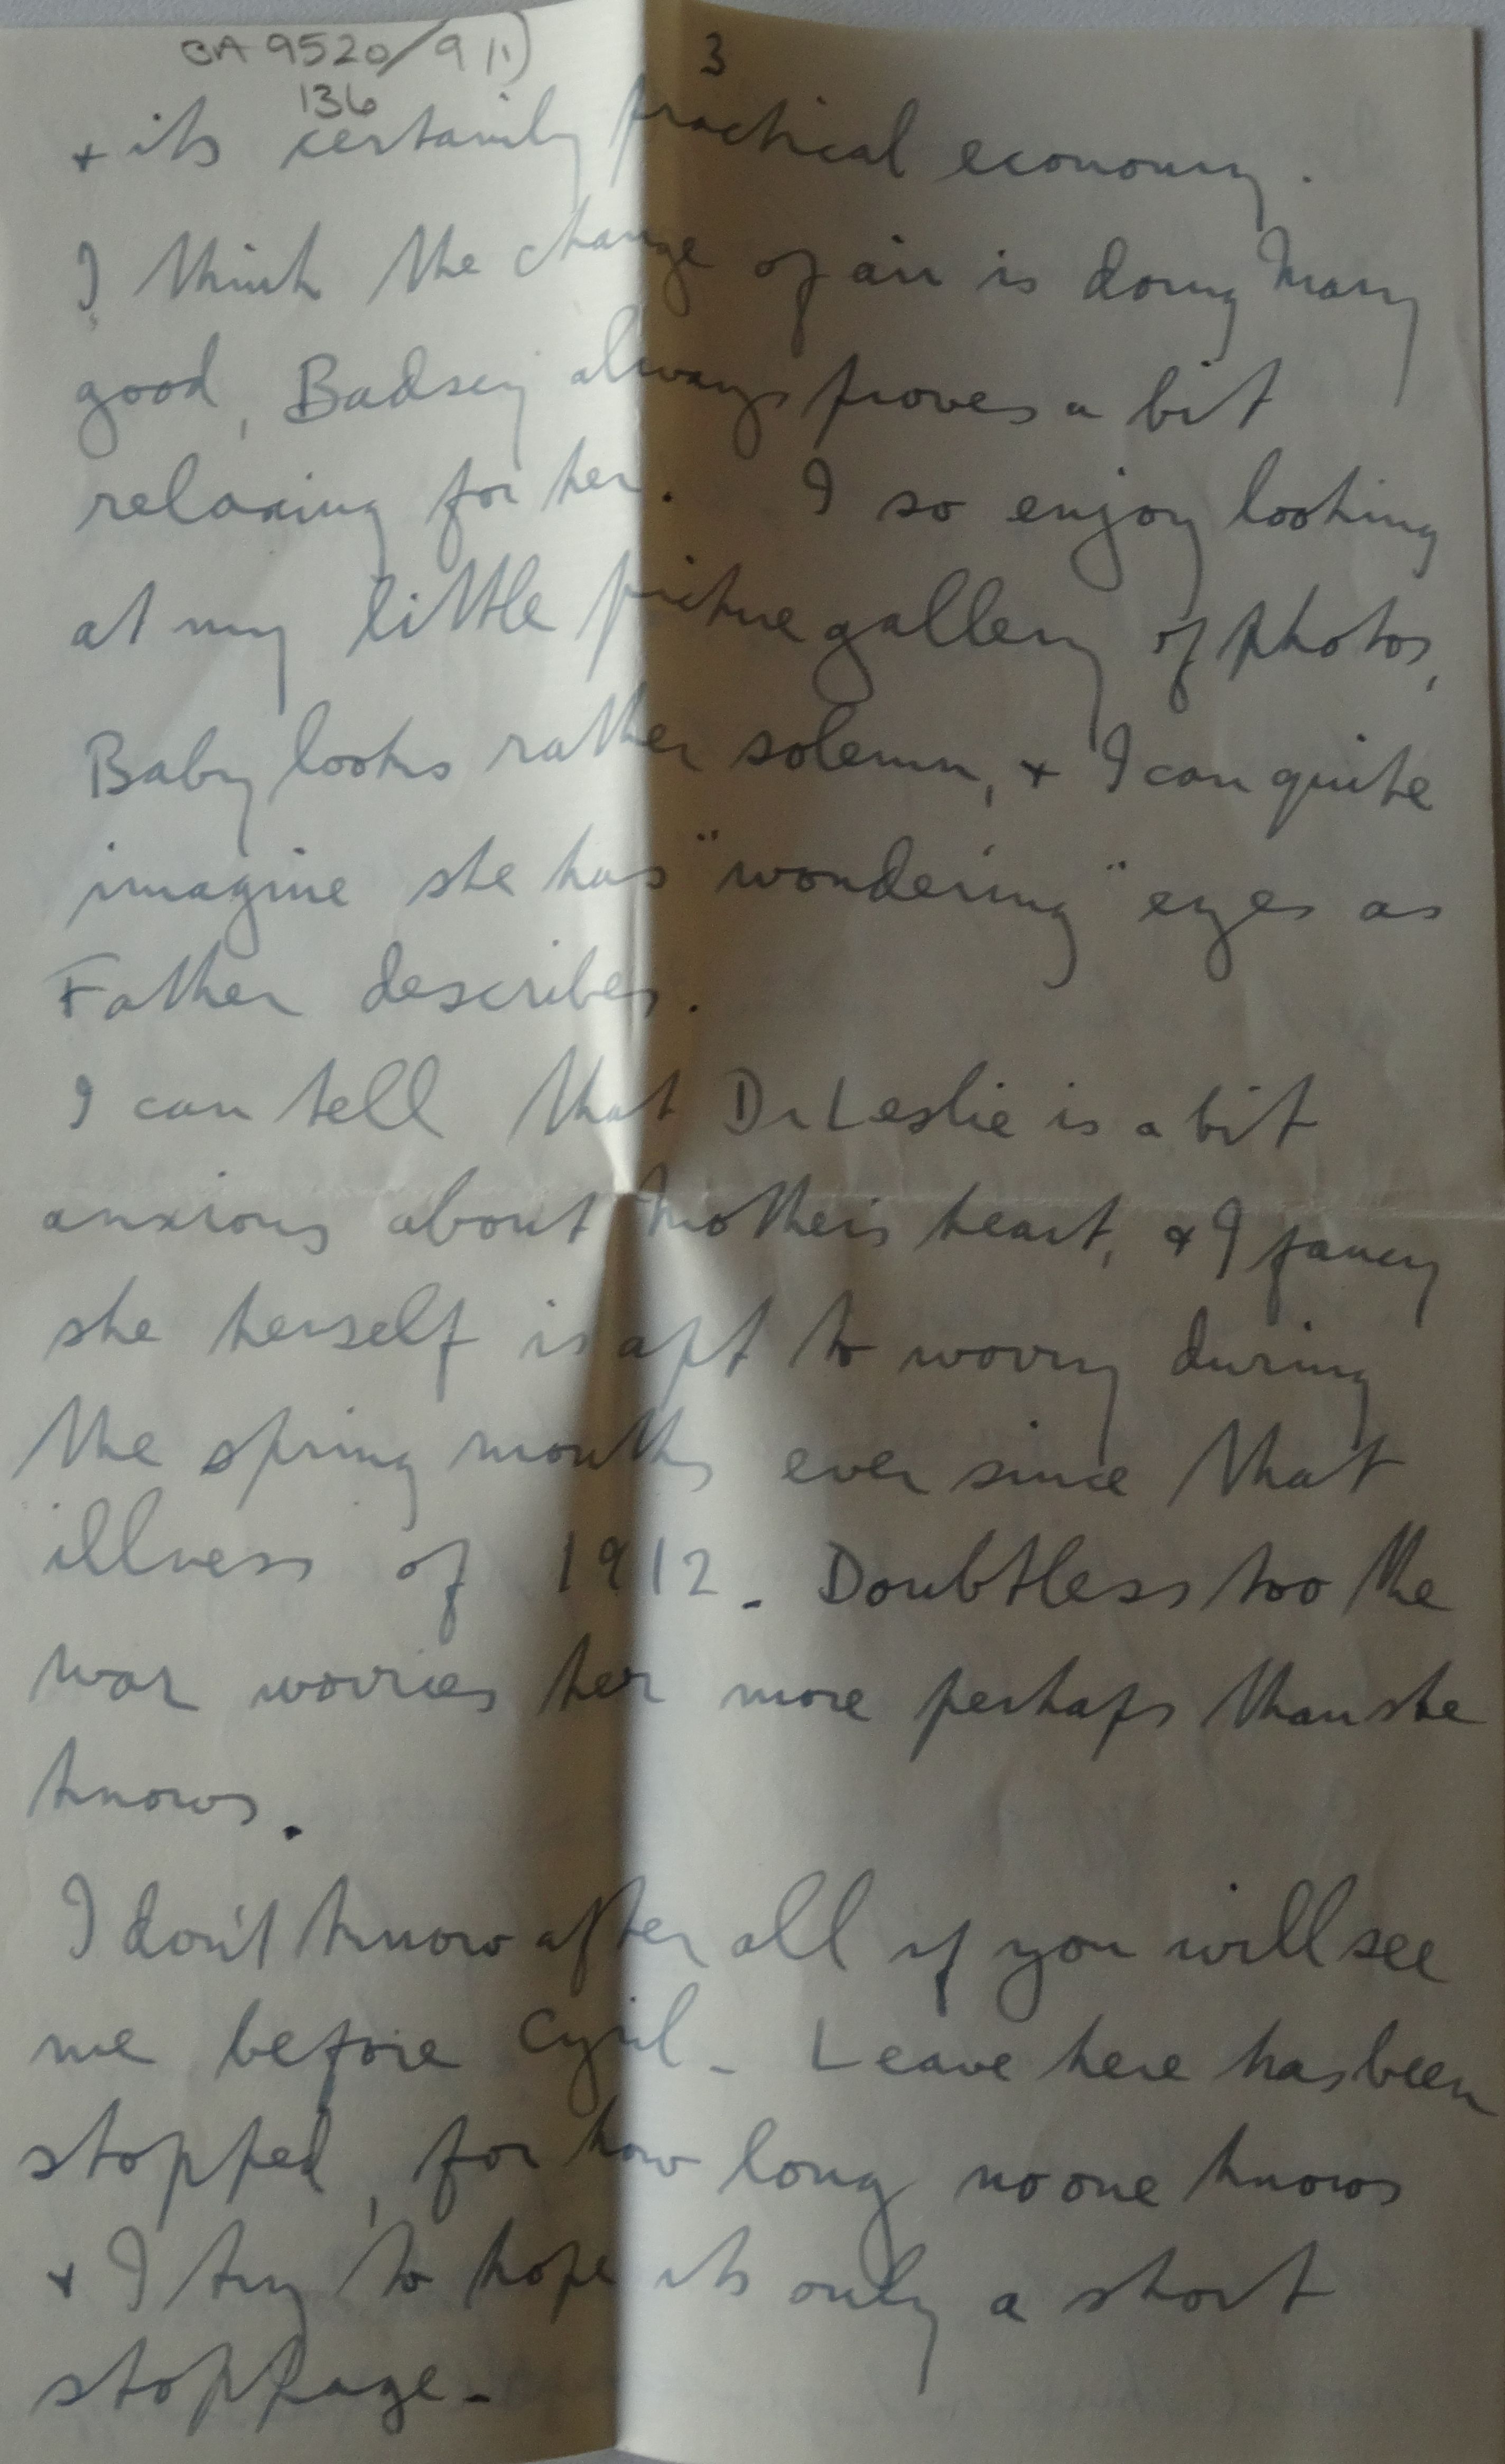 BA 9520/9 (1)
136
3
+ its certainly practical economy.
I think the change of air is doing Mary
good, Badsey always proves a bit
relaxing for her. I so enjoy looking
at my little picture gallery of photos,
Baby looks rather solemn, + I can quite
imagine she has "wondering" eyes as
Father describes.
I can tell that Dr Leslie is a bit
anxious about Mother's heart, & I fancy
she herself is apt to worry during
the spring months ever since that
illness of 1912. Doubtless too the
war worries her more perhaps than she
knows.
I don't know after all if you will see
me before Cyril - Leave here has been
stopped, for how long no one knows
+ I try to hope its only a short
stoppage -